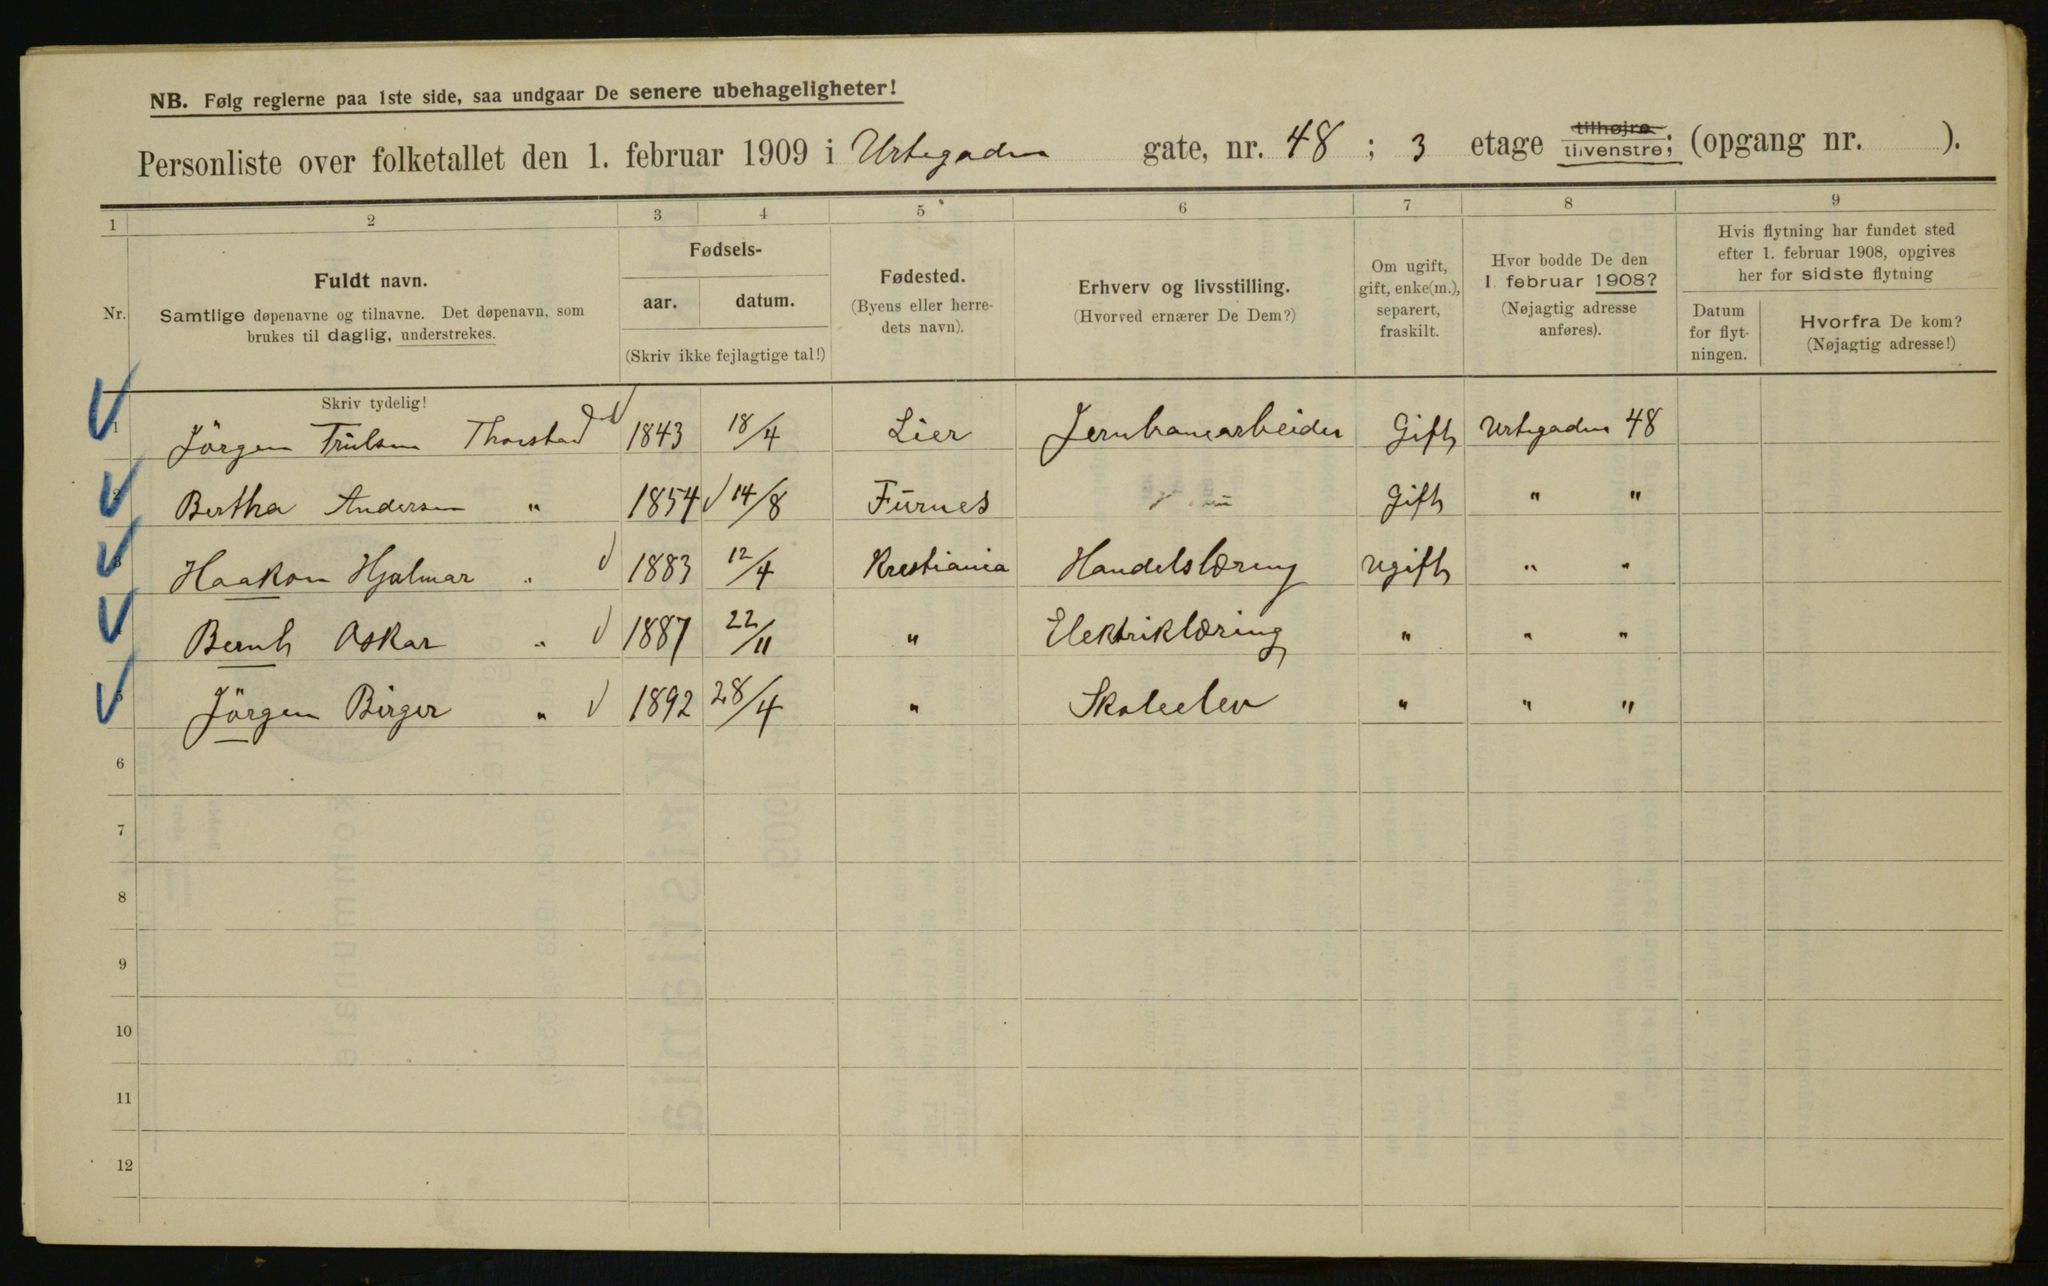 NB. Følg reglerne paa 1ste side, saa undgaar De senere ubehageligheter!
Personliste over folketallet den 1. februar 1909 i Urtegaden gate, nr. 48 ; 3 etage tilhøjre tilvenstre; (opgang nr. ).
1 2 3 4 5 6 7 8 9
Nr.
Fuldt navn.
Samtlige døpenavne og tilnavne. Det døpenavn, som
brukes til daglig, understrekes.
Fødsels-
aar. datum.
(Skriv ikke fejlagtige tal!)
Fødested.
(Byens eller herre-
dets navn).
Erhverv og livsstilling.
(Hvorved ernærer De Dem?)
Om ugift,
gift, enke(m.),
separert,
fraskilt.
Hvor bodde De den
1. februar 1908?
(Nøjagtig adresse
anføres).
Hvis flytning har fundet sted
efter 1. februar 1908, opgives
her for sidste flytning
Datum
for flyt-
ningen.
Hvorfra De kom?
(Nøjagtig adresse!)
Skriv tydelig!
1 Jörgen Trulsen Thorstad 1843 18/4 Lier Jernbanearbeider Gift Urtegaden 48
2 Bertha Andersen " 1854 14/8 Furnes Gift " "
3 Haakon Hjalmar " 1883 12/4 Kristiania Handelslæring Ugift " "
4 Bernh Oskar " 1887 22/11 " Elektriklæring " " "
5 Jörgen Birger " 1892 28/4 " Skoleelev " " "
6
7
8
9
10
11
12